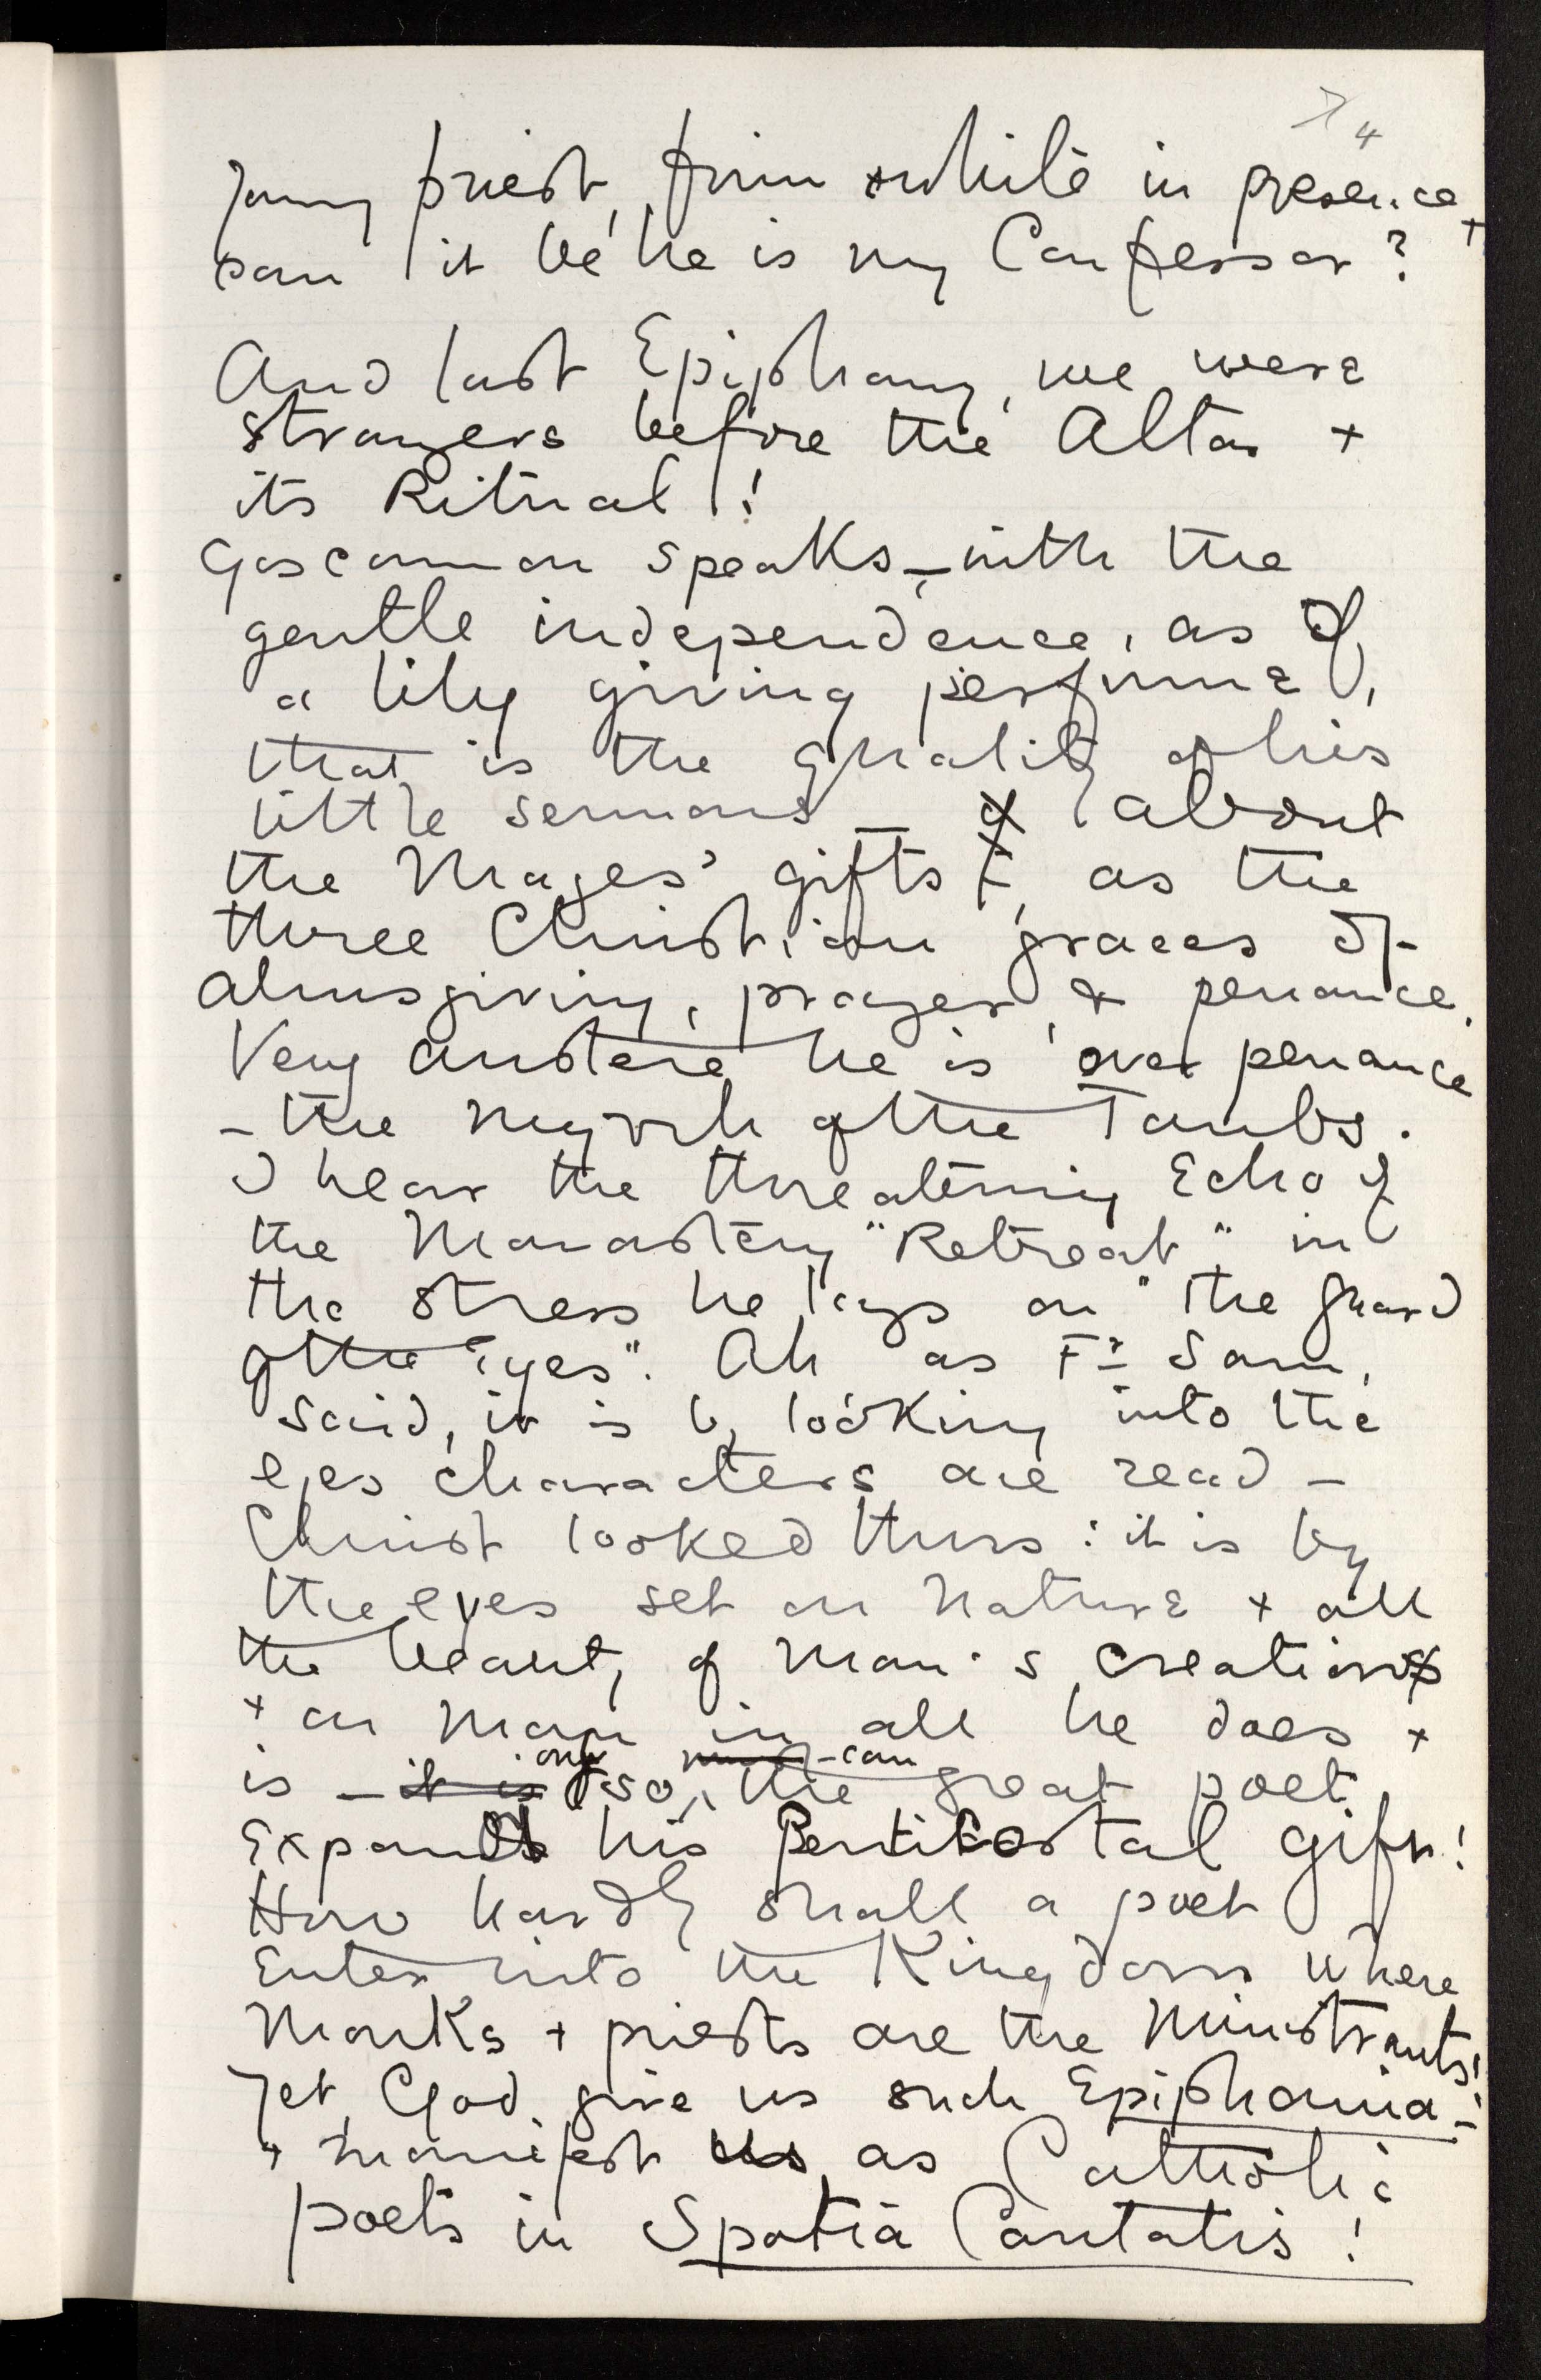 4
young priest, firm while in presence +
can it be he is my Confessor?
And last Epiphany, we were
strangers before the Altar +
its Ritual!
Goscannon speaks – with the
gentle independence, as of
a lily giving perfume,
that is the quality of his
little sermons – of about
the Mages' gifts, as the
three Christian graces of
Almsgiving, prayer, & penance.
Very austere he is over penance
– the myrrh of the Tombs.
I hear the threatening Echo of
the Monastery "Retreat" in
the stress he lays on "the guard
of the Eyes". Ah as Fr Sam,
said, it is by looking into the
eyes characters are read –
Christ looked thus: it is by
the eyes set on Nature + all
the beauty of Man's creations
+ on Man in all he does +
is – it is only so, can the great poet
Expand his Pentecostal gift!
How hardly shall a poet
Enter into the Kingdom where
Monks + priests are the Ministrants!
Yet, God, give us such Epiphania –
+ manifest us as Catholic
poets in Spatia Caritatis!